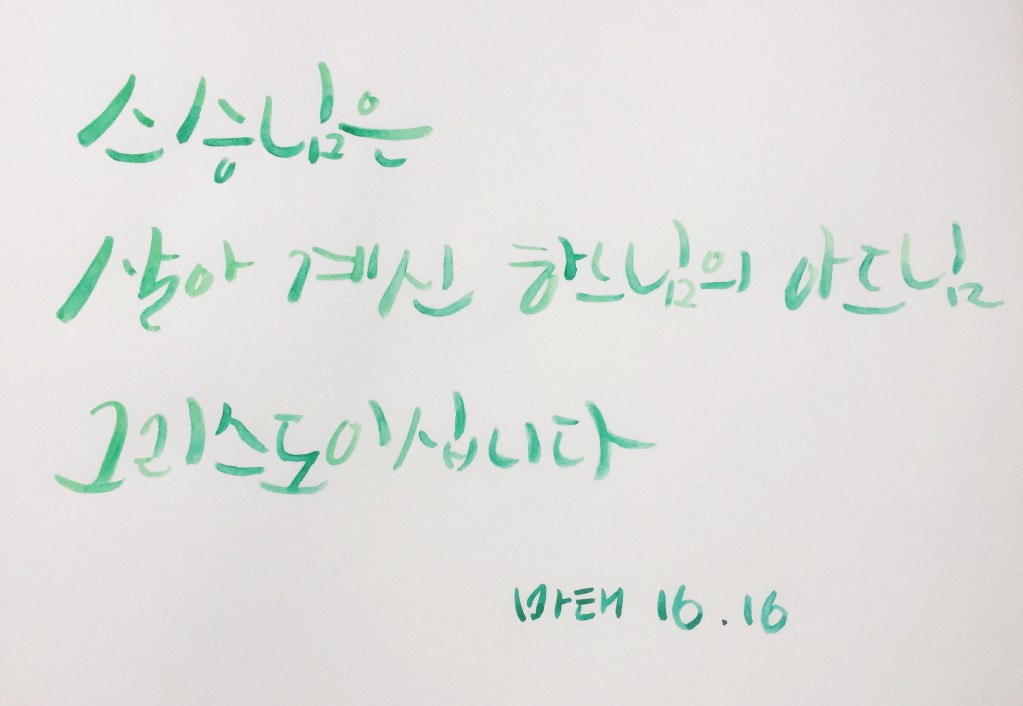 스승님은
살아 계신 하느님의 아드님
그리스도이십니다
마태 16.16